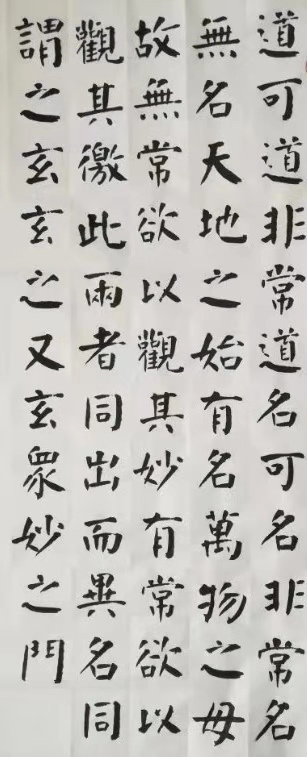 道可道非常道名可名非常名
無名天地之始有名萬物之母
故無常欲以觀其妙有常欲以
觀其徼此兩者同出而異名同
謂之玄玄之又玄衆妙之門